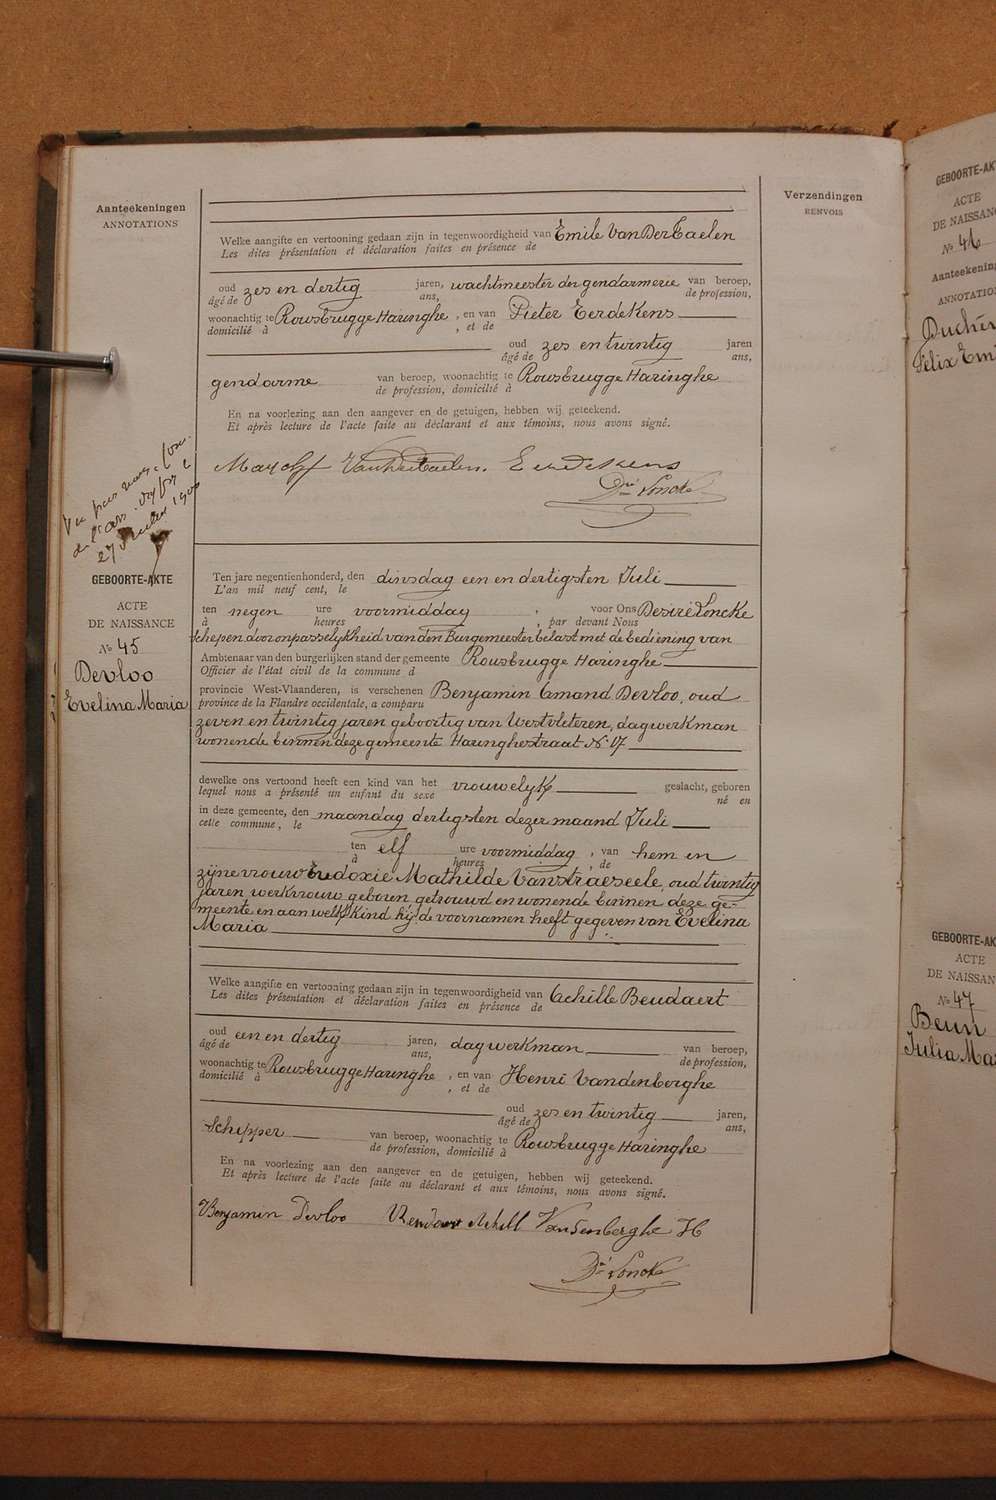 Aanteekeningen
ANNOTATIONS
Verzendingen
RENVOIS
Welke aangifte en vertooning gedaan zijn in tegenwoordigheid van Emile VanDerTaelen
Les dites présentation et déclaration faites en présence de
oud zes en dertig jaren, wachtmeester der gendarmerie van beroep,
âgé de ans, de profession,
woonachtig te Rousbrugge Haringhe, en van Pieter Eerdekens
domicilié à , et de
oud zes en twintig jaren
âgé de ans,
gendarme van beroep, woonachtig te Rousbrugge Haringhe
de profession, domicilié à
En na voorlezing aan den aangever en de getuigen, hebben wij geteekend.
Et après lecture de l'acte faite au déclarant et aux témoins, nous avons signé.
VanderTaelen. Eerdekens
Dré Loncke
Vu par nous,
de l'arr.
27 1900
GEBOORTE-AKTE
ACTE
DE NAISSANCE
No 45
Devloo
Evelina Maria
Ten jare negentienhonderd, den dinsdag een en dertigsten Juli
L'an mil neuf cent, le
ten negen ure voormiddag , voor Ons Desiré Loncke
à heures , par devant Nous
schepen door onpasselijkheid van den Burgemeester belast met de bediening van
Ambtenaar van den burgerlijken stand der gemeente Rousbrugge Haringhe
Officier de l'état civil de la commune d
provincie West-Vlaanderen, is verschenen Benjamin Amand Devloo, oud
province de la Flandre occidentale, a comparu
zeven en twintig jaren geboortig van Westvleteren, dagwerkman
wonende binnen deze gemeente Haringhestraat No 17
dewelke ons vertoond heeft een kind van het vrouwelyk geslacht, geboren
lequel nous a présenté un enfant du sexe né en
in deze gemeente, den maandag dertigsten dezer maand Juli
cette commune, le
ten elf ure voormiddag, van hem en
à heures , de
zijne vrouw Eudoxie Mathilde Vanstraeseele, oud twintig
jaren, werkvrouw geboren getrouwd en wonende binnen deze ge-
meente en aan welk kind hij de voornamen heeft gegeven van Evelina
Maria
Welke aangifte en vertooning gedaan zijn in tegenwoordigheid van Achille Beudaert
Les dites présentation et déclaration faites en présence de
oud een en dertig jaren, dagwerkman van beroep,
âgé de ans, de profession,
woonachtig te Rousbrugge Haringhe, en van Henri Vandenberghe
domicilié à , et de
oud zes en twintig jaren,
âgé de ans,
schipper van beroep, woonachtig te Rousbrugge Haringhe
de profession, domicilié à
En na voorlezing aan den aangever en de getuigen, hebben wij geteekend.
Et après lecture de l'acte faite au déclarant et aux témoins, nous avons signé.
Benjamin Devloo Achill Vandenberghe H
Dré Loncke
GEBOORTE-AK
ACTE
DE NAISSANCE
No 46
Aanteekening
ANNOTATION
Duchêr
Felix Emi
GEBOORTE-AK
ACTE
DE NAISSAN
No 47
Beun
Julia Ma